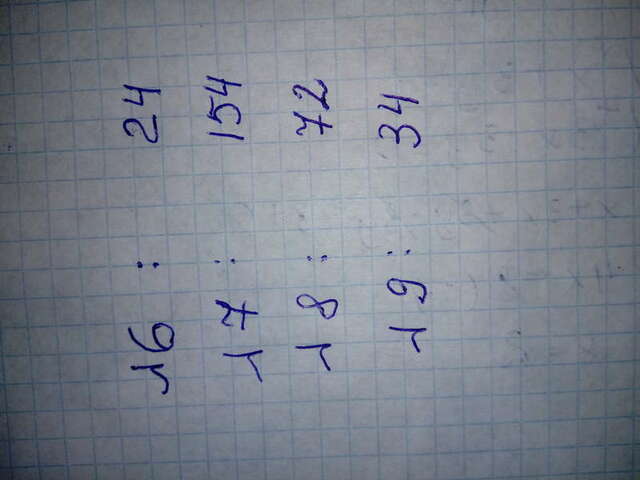 16 : 24
17 : 154
18 : 72
19 : 34